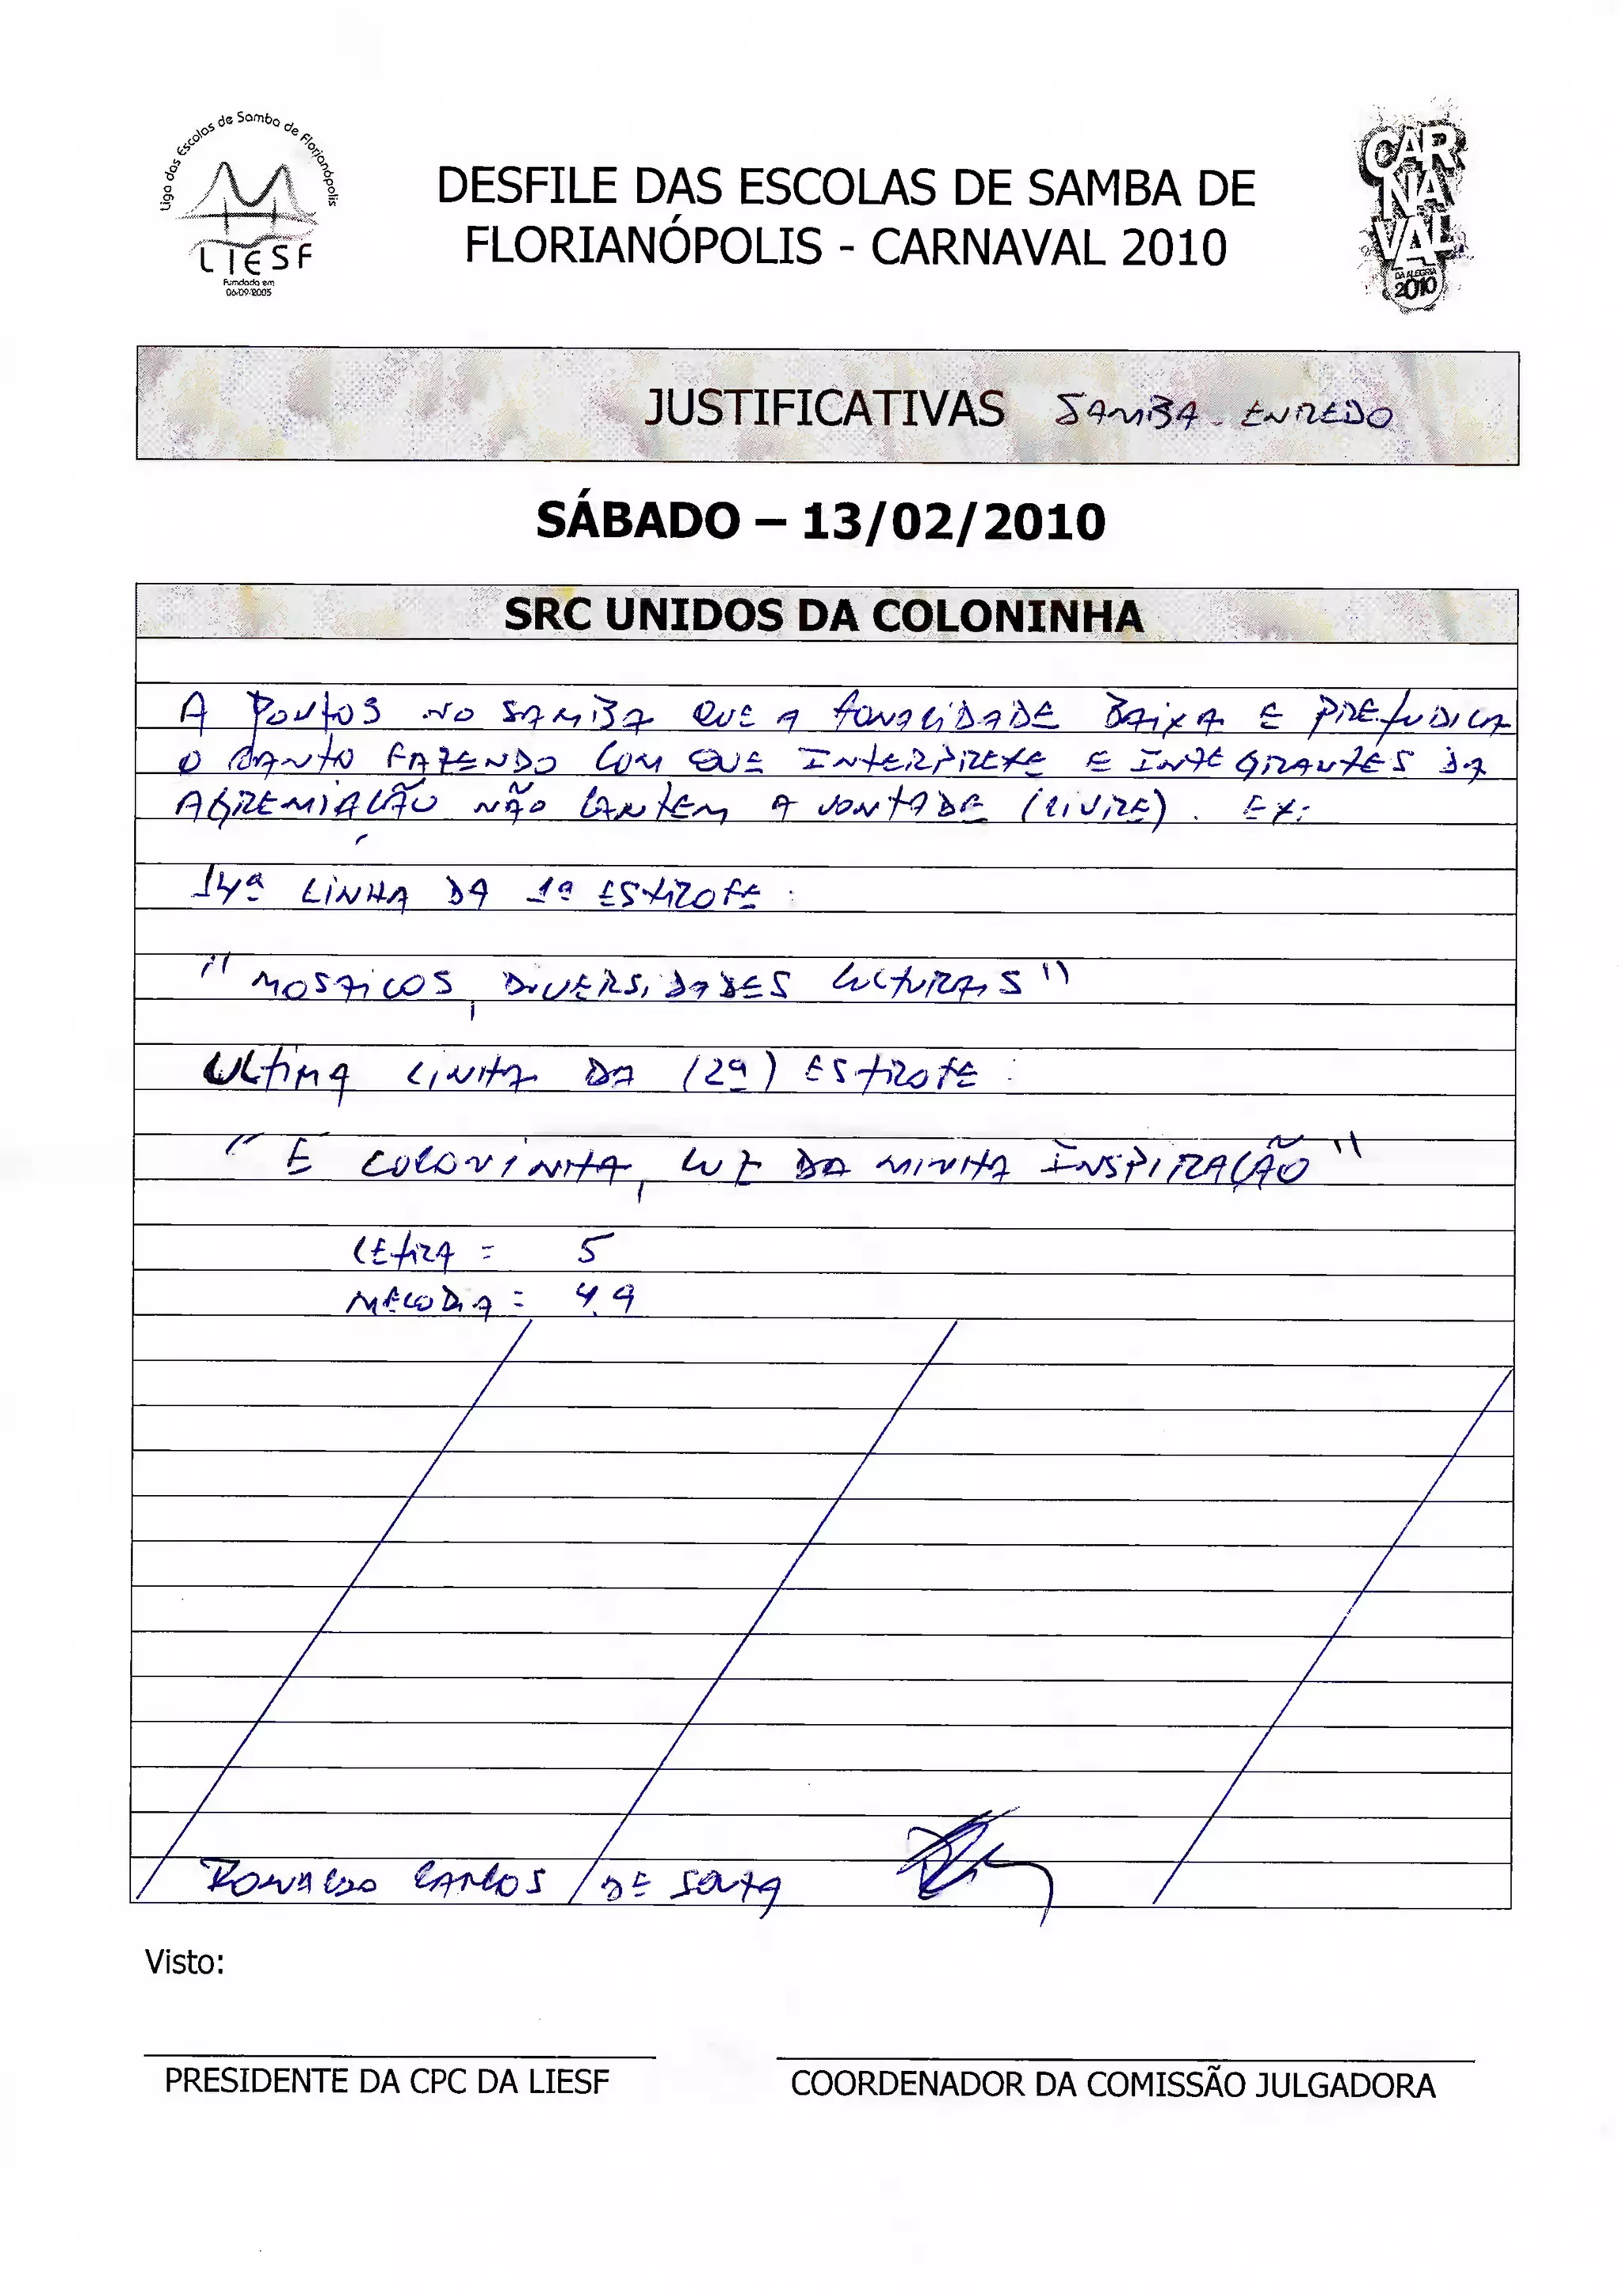 Liga das Escolas de Samba de Florianópolis
LIESF
Fumdada em
06-09-2005
DESFILE DAS ESCOLAS DE SAMBA DE
FLORIANÓPOLIS - CARNAVAL 2010
CAR
NA
VAL
DA ALEGRIA
2010
JUSTIFICATIVAS SAMBA - ENREDO
SÁBADO – 13/02/2010
SRC UNIDOS DA COLONINHA
A PONTOS NO SAMBA QUE A TONALIDADE BAIXA E PREJUDICA
O CANTO FAZENDO COM QUE INTERPRETE E INTEGRANTES DA
AGREMIAÇÃO NÃO CANTEM A VONTADE (LIVRE). EX:
14ª LINHA DA 1ª ESTROFE:
"MOSAICOS, DIVERSIDADES CULTURAIS"
ULTIMA LINHA DA (2ª) ESTROFE:
"E COLONINHA, LUZ DA MINHA INSPIRAÇÃO"
LETRA = 5
MELODIA = 4.9
RONALDO CARLOS DE
Visto:
PRESIDENTE DA CPC DA LIESF COORDENADOR DA COMISSÃO JULGADORA